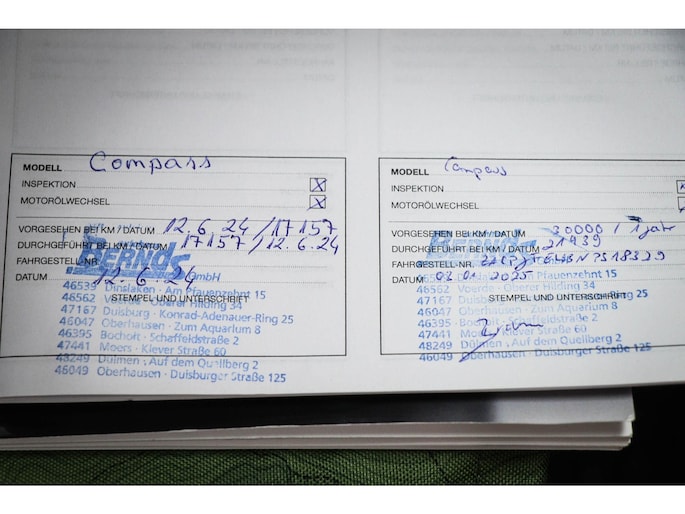 MODELL Compass
INSPEKTION X
MOTORÖLWECHSEL X
VORGESEHEN BEI KM / DATUM 12.6.24/17157
DURCHGEFÜHRT BEI KM / DATUM 17157/12.6.24
FAHRGESTELL-NR.
DATUM 12.6.24
BERNDS GmbH
STEMPEL UND UNTERSCHRIFT
46539 Dinslaken · Am Pfauenzehnt 15
46562 Voerde · Oberer Hilding 34
47167 Duisburg · Konrad-Adenauer-Ring 25
46047 Oberhausen · Zum Aquarium 8
46395 Bocholt · Schaffeldstraße 2
47441 Moers · Klever Straße 60
48249 Dülmen · Auf dem Quellberg 2
46049 Oberhausen · Duisburger Straße 125
MODELL Compass
INSPEKTION
MOTORÖLWECHSEL
VORGESEHEN BEI KM / DATUM 30000 / 1 Jahr
DURCHGEFÜHRT BEI KM / DATUM 21939
FAHRGESTELL-NR.
DATUM 08.01.2025
STEMPEL UND UNTERSCHRIFT
Pfauenzehnt 15
46562 Voerde · Oberer Hilding 34
47167 Duisburg · Konrad-Adenauer-Ring 25
46047 Oberhausen · Zum Aquarium 8
46395 Schaffeldstraße 2
47441 Klever Straße 60
48249 Dülmen · Auf dem Quellberg 2
46049 Oberhausen · Duisburger Straße 125